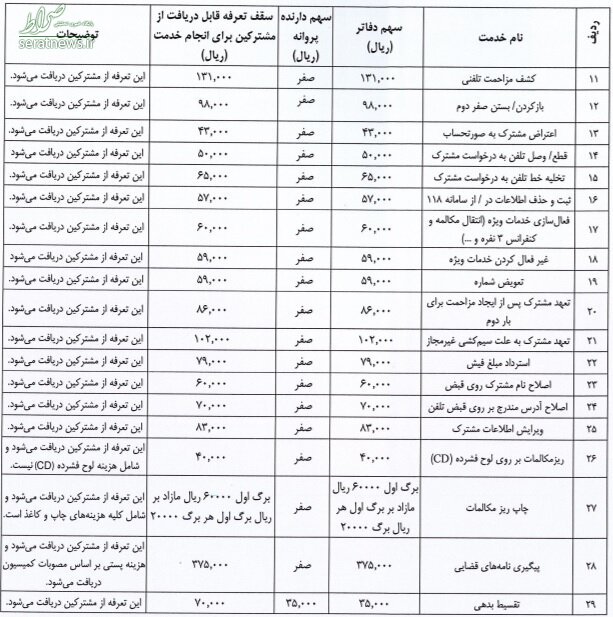 صراط
seratnews.ir
ردیف نام خدمت سهم دفاتر (ریال) سهم دارنده پروانه (ریال) سقف تعرفه قابل دریافت از مشترکین برای انجام خدمت (ریال) توضیحات
۱۱ کشف مزاحمت تلفنی ۱۳۱,۰۰۰ صفر ۱۳۱,۰۰۰ این تعرفه از مشترکین دریافت می‌شود.
۱۲ بازکردن/ بستن صفر دوم ۹۸,۰۰۰ صفر ۹۸,۰۰۰ این تعرفه از مشترکین دریافت می‌شود.
۱۳ اعتراض مشترک به صورتحساب ۴۳,۰۰۰ صفر ۴۳,۰۰۰ این تعرفه از مشترکین دریافت می‌شود.
۱۴ قطع/ وصل تلفن به درخواست مشترک ۵۰,۰۰۰ صفر ۵۰,۰۰۰ این تعرفه از مشترکین دریافت می‌شود.
۱۵ تخلیه خط تلفن به درخواست مشترک ۶۵,۰۰۰ صفر ۶۵,۰۰۰ این تعرفه از مشترکین دریافت می‌شود.
۱۶ ثبت و حذف اطلاعات در / از سامانه ۱۱۸ ۵۷,۰۰۰ صفر ۵۷,۰۰۰ این تعرفه از مشترکین دریافت می‌شود.
۱۷ فعال‌سازی خدمات ویژه (انتقال مکالمه و
کنفرانس ۳ نفره و ...) ۶۰,۰۰۰ صفر ۶۰,۰۰۰ این تعرفه از مشترکین دریافت می‌شود.
۱۸ غیر فعال کردن خدمات ویژه ۵۹,۰۰۰ صفر ۵۹,۰۰۰ این تعرفه از مشترکین دریافت می‌شود
۱۹ تعویض شماره ۵۹,۰۰۰ صفر ۵۹,۰۰۰ این تعرفه از مشترکین دریافت می‌شود.
۲۰ تعهد مشترک پس از ایجاد مزاحمت برای
بار دوم ۸۶,۰۰۰ صفر ۸۶,۰۰۰ این تعرفه از مشترکین دریافت می‌شود.
۲۱ تعهد مشترک به علت سیم‌کشی غیرمجاز ۱۰۲,۰۰۰ صفر ۱۰۲,۰۰۰ این تعرفه از مشترکین دریافت می‌شود.
۲۲ استرداد مبلغ فیش ۷۹,۰۰۰ صفر ۷۹,۰۰۰ این تعرفه از مشترکین دریافت می‌شود.
۲۳ اصلاح نام مشترک روی قبض ۶۰,۰۰۰ صفر ۶۰,۰۰۰ این تعرفه از مشترکین دریافت می‌شود.
۲۴ اصلاح آدرس مندرج بر روی قبض تلفن ۷۰,۰۰۰ صفر ۷۰,۰۰۰ این تعرفه از مشترکین دریافت می‌شود.
۲۵ ویرایش اطلاعات مشترک ۸۳,۰۰۰ صفر ۸۳,۰۰۰ این تعرفه از مشترکین دریافت می‌شود.
۲۶ ریزمکالمات بر روی لوح فشرده (CD) ۴۰,۰۰۰ صفر ۴۰,۰۰۰ این تعرفه از مشترکین دریافت می‌شود و
شامل هزینه لوح فشرده (CD) نیست.
۲۷ چاپ ریز مکالمات برگ اول ۶۰۰۰۰ ریال
مازاد بر برگ اول هر
برگ ۲۰۰۰۰ ریال صفر برگ اول ۶۰۰۰۰ ریال مازاد بر
برگ اول هر برگ ۲۰۰۰۰ ریال این تعرفه از مشترکین دریافت می‌شود و
شامل کلیه هزینه‌های چاپ و کاغذ است.
۲۸ پیگیری نامه‌های قضایی ۳۷۵,۰۰۰ صفر ۳۷۵,۰۰۰ این تعرفه از مشترکین دریافت می‌شود و
هزینه پستی بر اساس مصوبات کمیسیون
دریافت می‌شود.
۲۹ تقسیط بدهی ۳۵,۰۰۰ ۳۵,۰۰۰ ۷۰,۰۰۰ این تعرفه از مشترکین دریافت می‌شود.